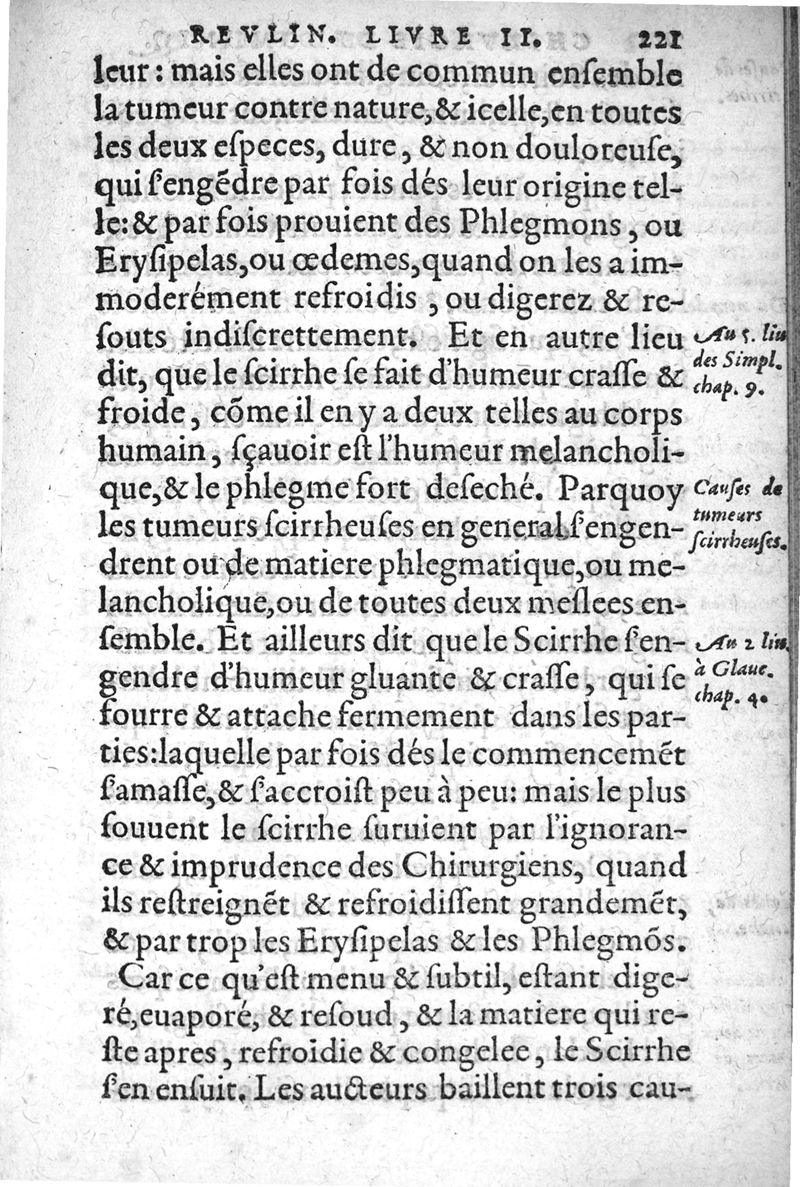 REVLIN. LIVRE II. 221
leur : mais elles ont de commun enſemble
la tumeur contre nature, & icelle, en toutes
les deux eſpeces, dure, & non douloureuſe,
qui ſ'engẽdre par fois dés leur origine tel-
le: & par fois prouient des Phlegmons, ou
Eryſipelas, ou œdemes, quand on les a im-
moderément refroidis, ou digerez & re-
ſouts indiſcrettement. Et en autre lieu
dit, que le ſcirrhe ſe fait d'humeur craſſe &
froide, cõme il en y a deux telles au corps
humain, ſçauoir eſt l'humeur melancholi-
que, & le phlegme fort deſeché. Parquoy
les tumeurs ſcirrheuſes en general ſ'engen-
drent ou de matiere phlegmatique, ou me-
lancholique, ou de toutes deux meſlees en-
ſemble. Et ailleurs dit que le Scirrhe ſ'en-
gendre d'humeur gluante & craſſe, qui ſe
fourre & attache fermement dans les par-
ties: laquelle par fois dés le commencemẽt
ſ'amaſſe, & ſ'accroiſt peu à peu: mais le plus
ſouuent le ſcirrhe ſuruient par l'ignoran-
ce & imprudence des Chirurgiens, quand
ils reſtreignẽt & refroidiſſent grandemẽt,
& par trop les Eryſipelas & les Phlegmõs.
Car ce qu'eſt menu & ſubtil, eſtant dige-
ré, euaporé, & reſoud, & la matiere qui re-
ſte apres, refroidie & congelee, le Scirrhe
ſ'en enſuit. Les aucteurs baillent trois cau-
Au 5. liu
des Simpl.
chap. 9.
Cauſes de
tumeurs
ſcirrheuſes.
Au 2 liu.
à Glauc.
chap. 4.